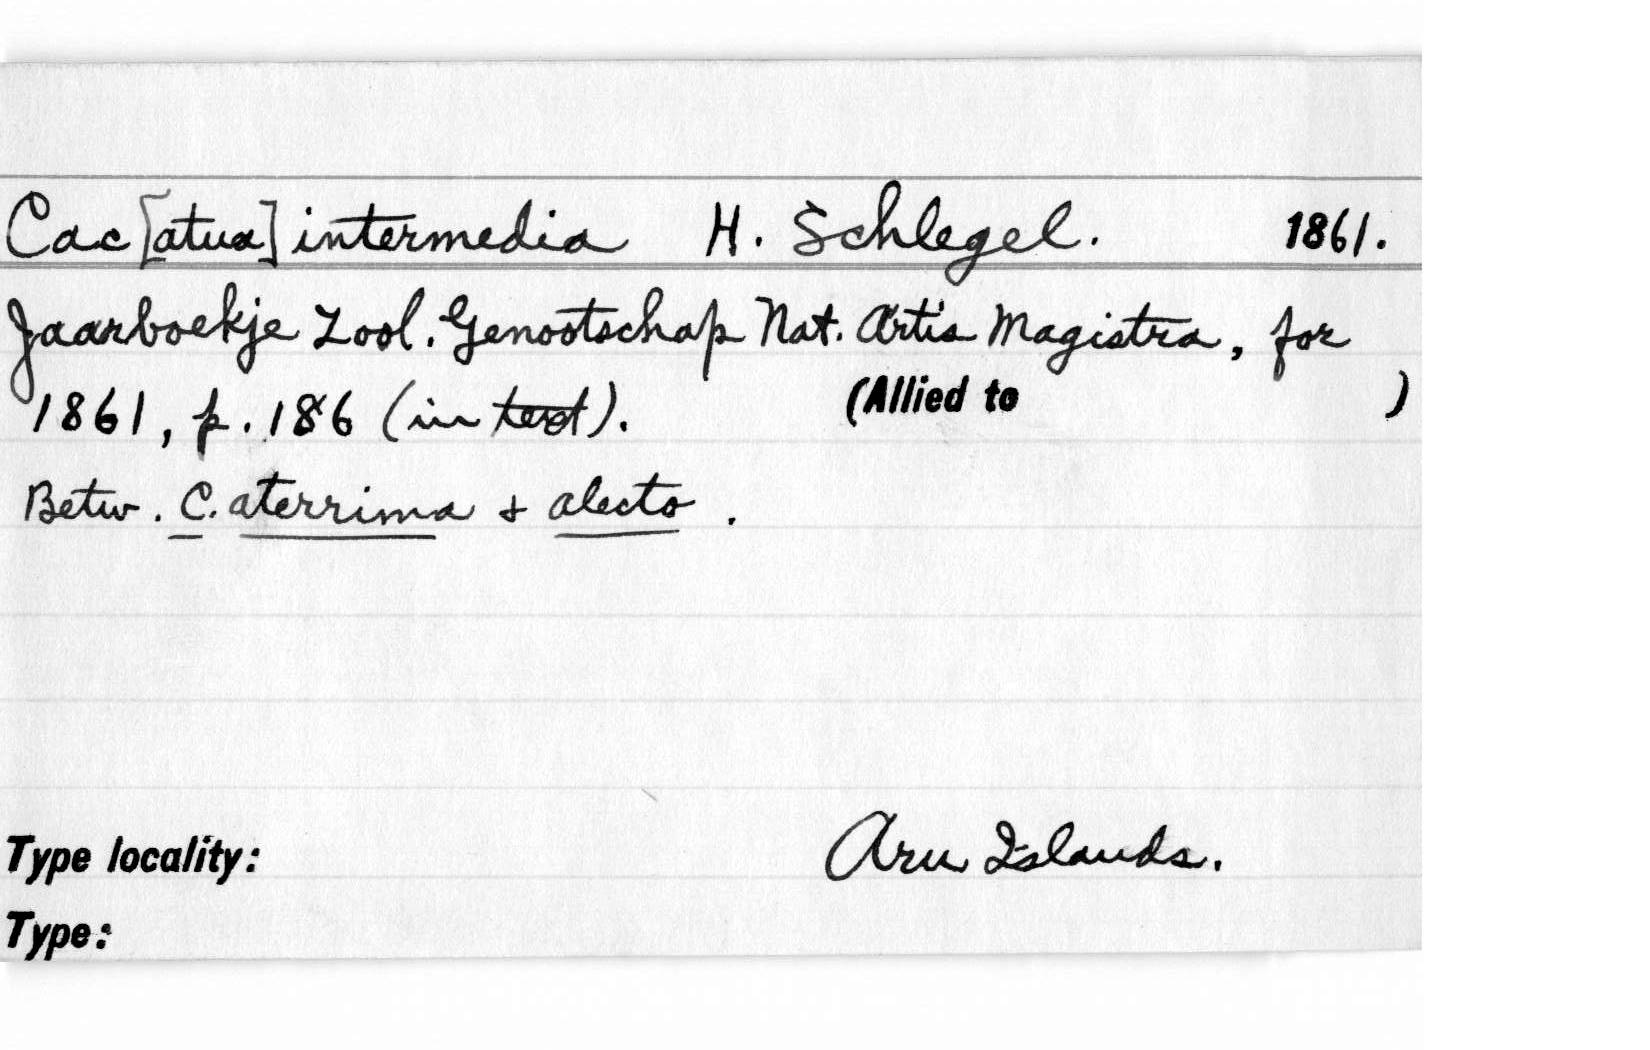 Cac[atua] intermedia H. Schlegel. 1861.
Jaarboekje Zool. Genootschap Nat. Artis Magistra, for
1861, p. 186 (in text). (Allied to )
Betw. C. aterrima & alecto.
Type locality: Aru Islands.
Type: